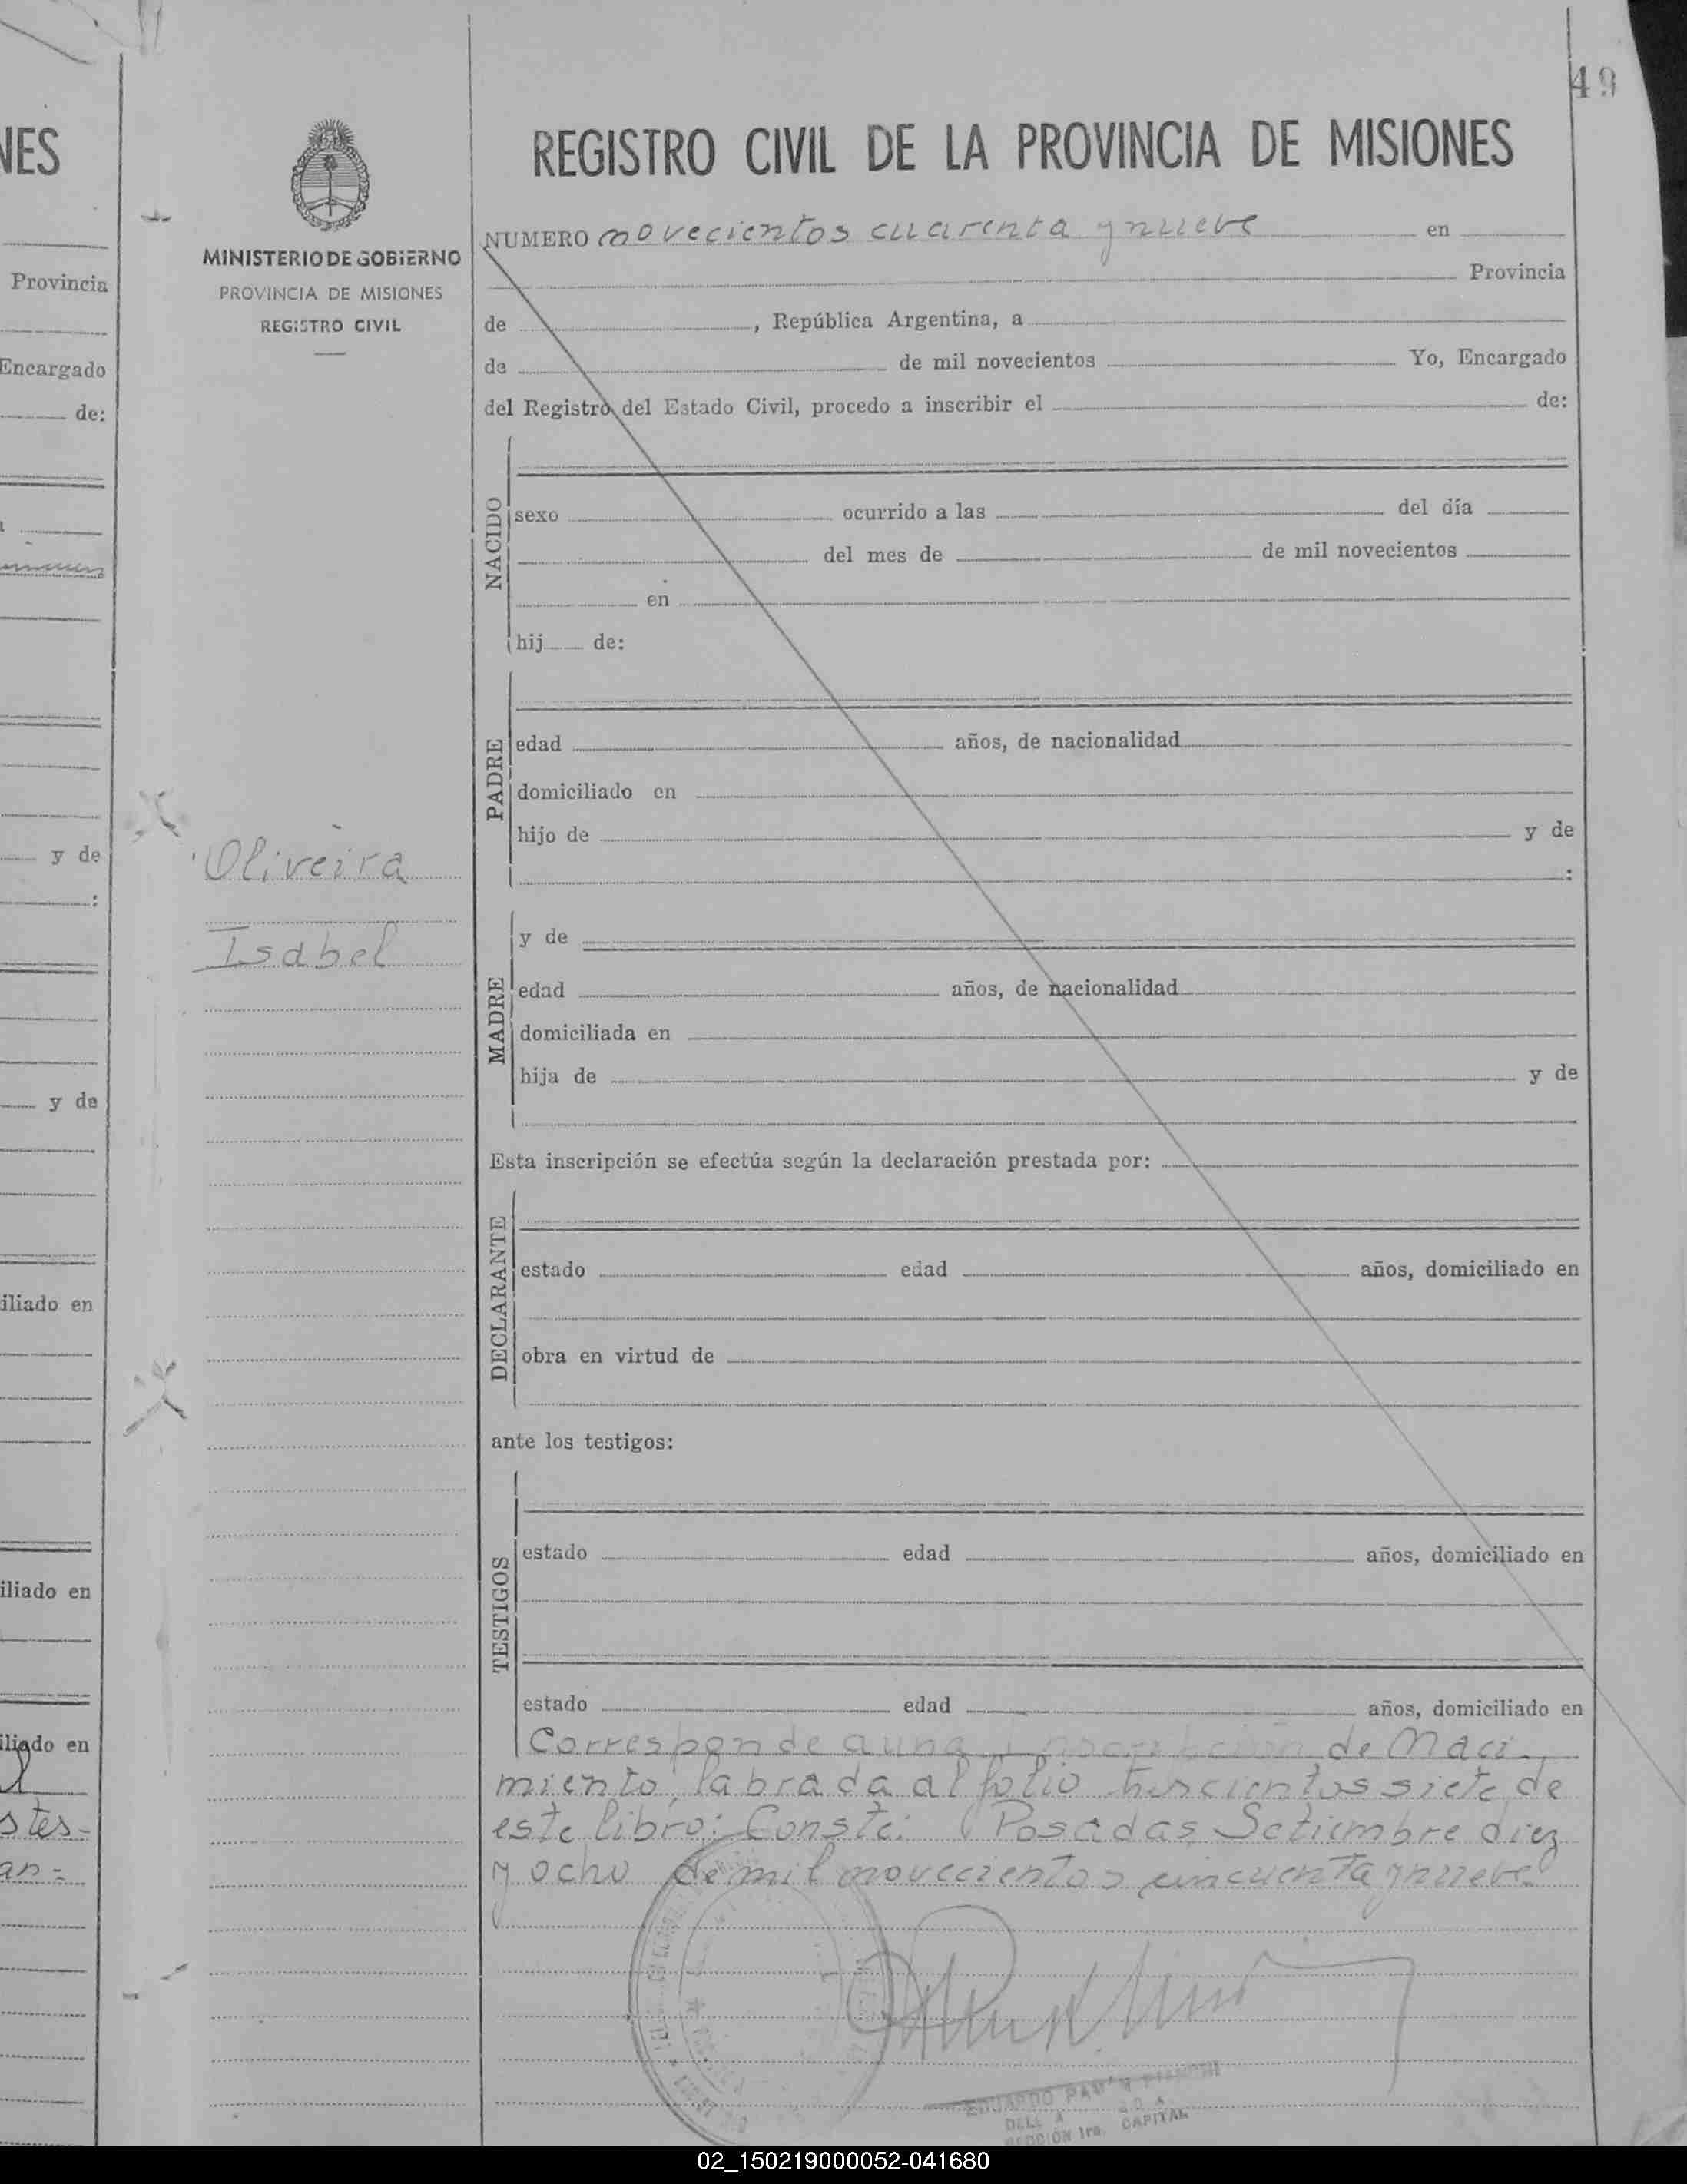 49
NES
Provincia
Encargado
de:
y de
:
y de
iliado en
iliado en
iliado en
stes-
an=
MINISTERIO DE GOBIERNO
PROVINCIA DE MISIONES
REGISTRO CIVIL
Oliveira
Isabel
REGISTRO CIVIL DE LA PROVINCIA DE MISIONES
NUMERO novecientos cuarenta y nueve en
Provincia
de , República Argentina, a
de de mil novecientos Yo, Encargado
del Registro del Estado Civil, procedo a inscribir el de:
NACIDO
sexo ocurrido a las del día
del mes de de mil novecientos
en
hij de:
PADRE
edad años, de nacionalidad
domiciliado en
hijo de y de
:
MADRE
y de
edad años, de nacionalidad
domiciliada en
hija de y de
Esta inscripción se efectúa según la declaración prestada por:
DECLARANTE
estado edad años, domiciliado en
obra en virtud de
ante los testigos:
TESTIGOS
estado edad años, domiciliado en
estado edad años, domiciliado en
Corresponde a una inscripción de Naci-
miento, labrada al folio trescientos siete de
este libro: Conste: Posadas Setiembre diez
y ocho de mil novecientos cincuenta y nueve
EDUARDO
SECCIÓN 1ra. CAPITAL
02_150219000052-041680